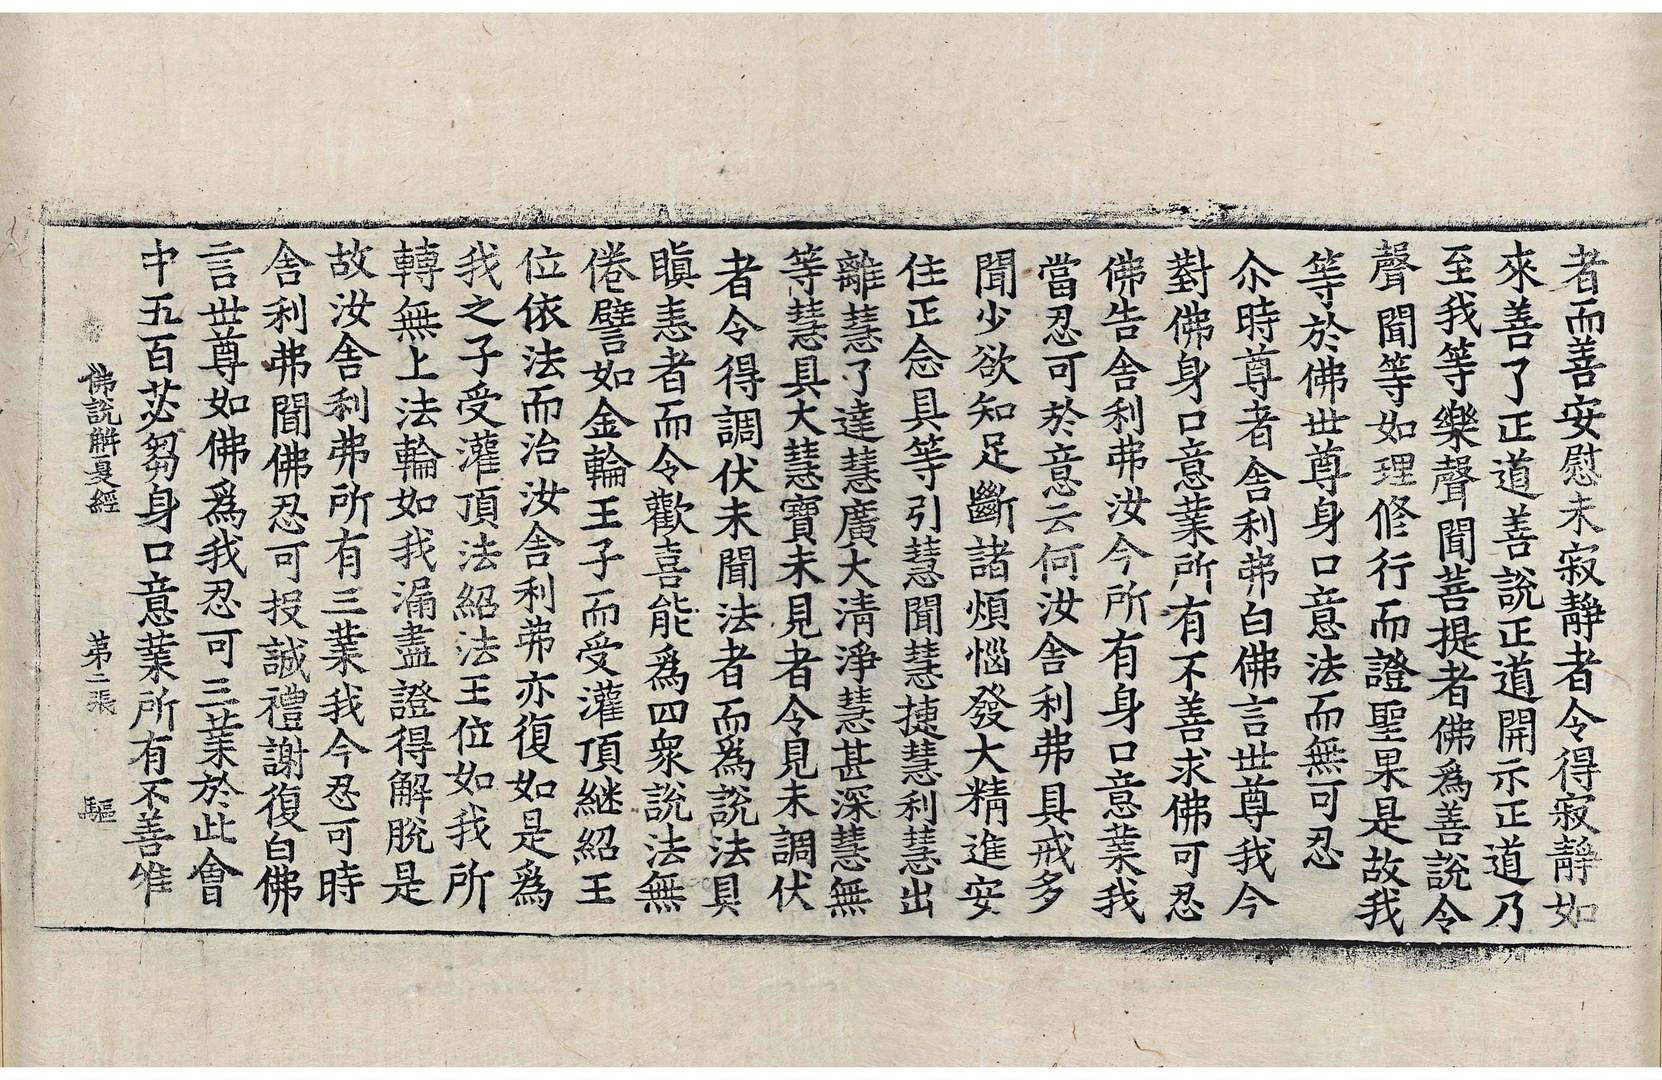 者而善安慰未寂靜者令得寂靜如
來善了正道善說正道開示正道乃
至我等樂聲聞菩提者佛爲善說令
聲聞等如理修行而證聖果是故我
等於佛世尊身口意法而無可忍
尒時尊者舍利弗白佛言世尊我今
對佛身口意業所有不善求佛可忍
佛告舍利弗汝今所有身口意業我
當忍可於意云何汝舍利弗具戒多
聞少欲知足斷諸煩惱發大精進安
住正念具等引慧聞慧捷慧利慧出
離慧了達慧廣大清淨慧甚深慧無
等慧具大慧寶未見者令見未調伏
者令得調伏未聞法者而爲說法具
瞋恚者而令歡喜能爲四衆說法無
倦譬如金輪王子而受灌頂継紹王
位依法而治汝舍利弗亦復如是爲
我之子受灌頂法紹法王位如我所
轉無上法輪如我漏盡證得解脫是
故汝舍利弗所有三業我今忍可時
舍利弗聞佛忍可投誠禮謝復白佛
言世尊如佛爲我忍可三業於此會
中五百苾芻身口意業所有不善惟
佛說解夏經 第二張 驅